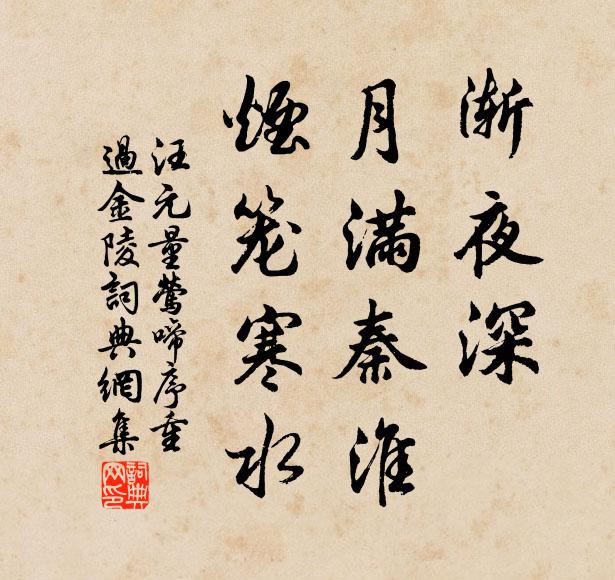 渐夜深
月满秦淮
烟笼寒水
汪元量莺啼序重
過金陵詞典網集
詞典网印